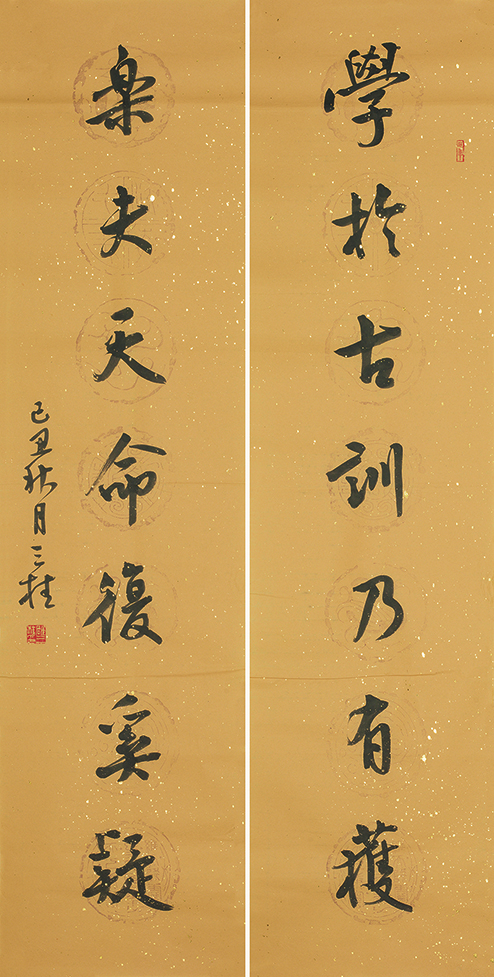 學於古訓乃有獲
楽夫天命復奚疑
己丑秋月三桂